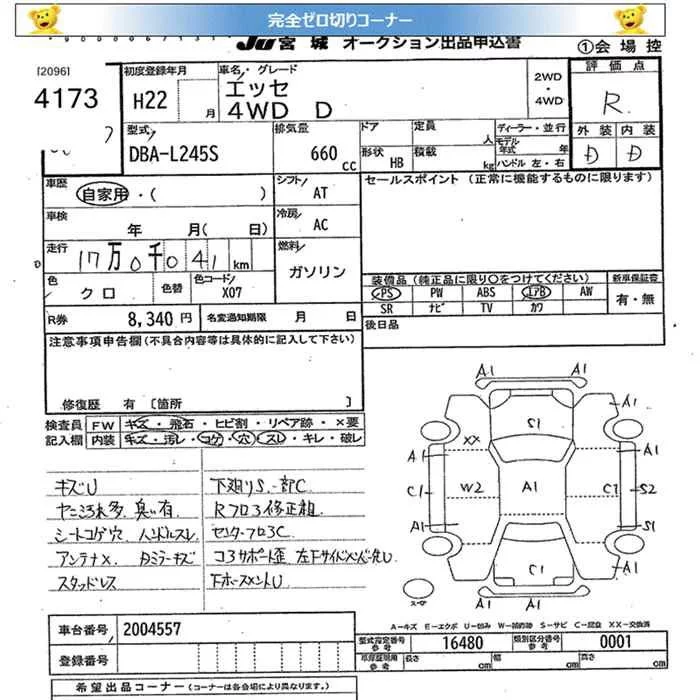 完全ゼロ切りコーナー
JU 宮城 オークション出品申込書 ①会場控
[2096]
4173
初度登録年月 H22 月
車名・グレード エッセ
4WD D
2WD
・4WD
評価点
R
外装 内装
D D
型式 DBA-L245S
排気量 660 cc
ドア
形状 HB
定員 人
積載 kg
ディーラー・並行
モデル年式 年
ハンドル 左・右
車歴 自家用・( )
シフト AT
セールスポイント (正常に機能するものに限ります)
車検 年 月( 日)
冷房 AC
走行 17万0千041 km
燃料 ガソリン
色 クロ 色替 色コード X07
装備品 (純正品に限り○をつけてください) 新車保証書
PS PW ABS エアB AW 有・無
SR ナビ TV カワ
R券 8,340 円 名変通知期限 月 日
後日品
注意事項申告欄(不具合内容等は具体的に記入して下さい)
修復歴 有 [箇所 ]
検査員 FW キズ・飛石・ヒビ割・リペア跡・×要
記入欄 内装 キズ・汚レ・コゲ・穴・スレ・キレ・破レ
キズU 下廻りS.一部C
ヤニ汚れ多 臭い有 Rフロア修正粗
シートコゲ穴 ハンドルスレ センターフロアC
アンテナ× ミラーキズ コアサポート歪 左Fサイドメンバー先U
スタッドレス
A1 A1
S1
A1
A1 XX A1
C1 W2 A1 C1 S2
A1 S1
A1 A1
スペア
A-キズ E-エクボ U-凹み W-補修跡 S-サビ C-腐食 XX-交換済
車台番号 2004557
型式指定番号 参考 16480 類別区分番号 参考 0001
登録番号
車庫証明用 参考 長さ cm 幅 cm 高さ cm
希望出品コーナー (コーナーは各会場により異なります。)